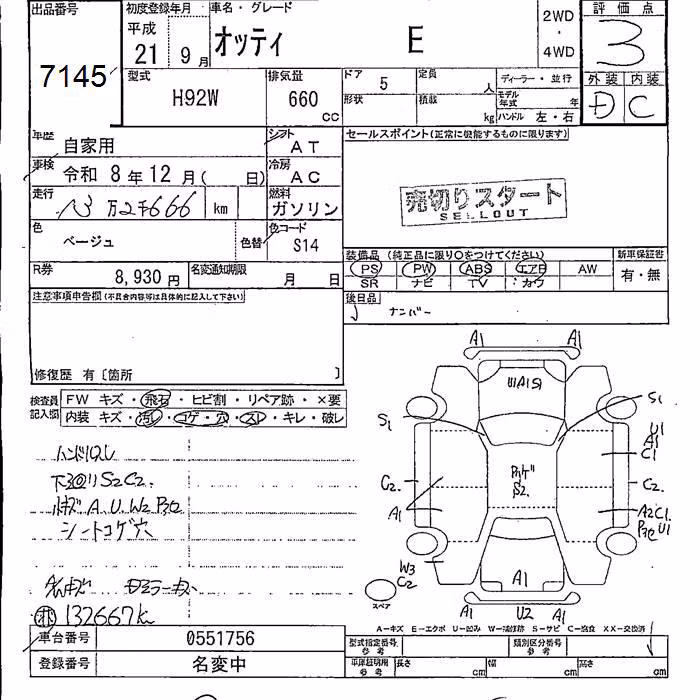 出品番号
7145
初度登録年月
平成
21 9月
車名・グレード
オッティ E
2WD
・
4WD
評価点
3
外装 内装
D C
型式
H92W
排気量
660
cc
ドア 5
定員 人
形状
積載 kg
ディーラー・並行
モデル年式 年
ハンドル 左・右
車歴
自家用
シフト
AT
セールスポイント(正常に機能するものに限ります)
車検
令和 8年 12月( 日)
冷房
AC
走行
13万2千666 km
燃料
ガソリン
売切りスタート
SELLOUT
色
ベージュ
色替
色コード
S14
R券
8,930円
名変通知期限
月 日
装備品(純正品に限り○をつけてください)
PS PW ABS エアB AW
SR ナビ TV カワ
新車保証書
有・無
注意事項申告欄(不具合内容等は具体的に記入して下さい)
後日品
ナンバー
修復歴 有〔箇所 〕
検査員記入欄
FW キズ・飛石・ヒビ割・リペア跡・×要
内装 キズ・汚レ・コゲ・穴・スレ・キレ・破レ
下回りS2C2
A U W2
シートコゲ穴
132667k
A1 A1
A1 S1
S1 S1
U1
A1
C1
C2 S2 C2
A1
A2 C1
U1
W3
C2
A1
スペア
A1 U2 A1
A−キズ E−エクボ U−凹み W−補修跡 S−サビ C−腐食 XX−交換済
車台番号 0551756
登録番号 名変中
型式指定番号
参考
類別区分番号
参考
車庫証明用
参考
長さ cm
幅 cm
高さ cm